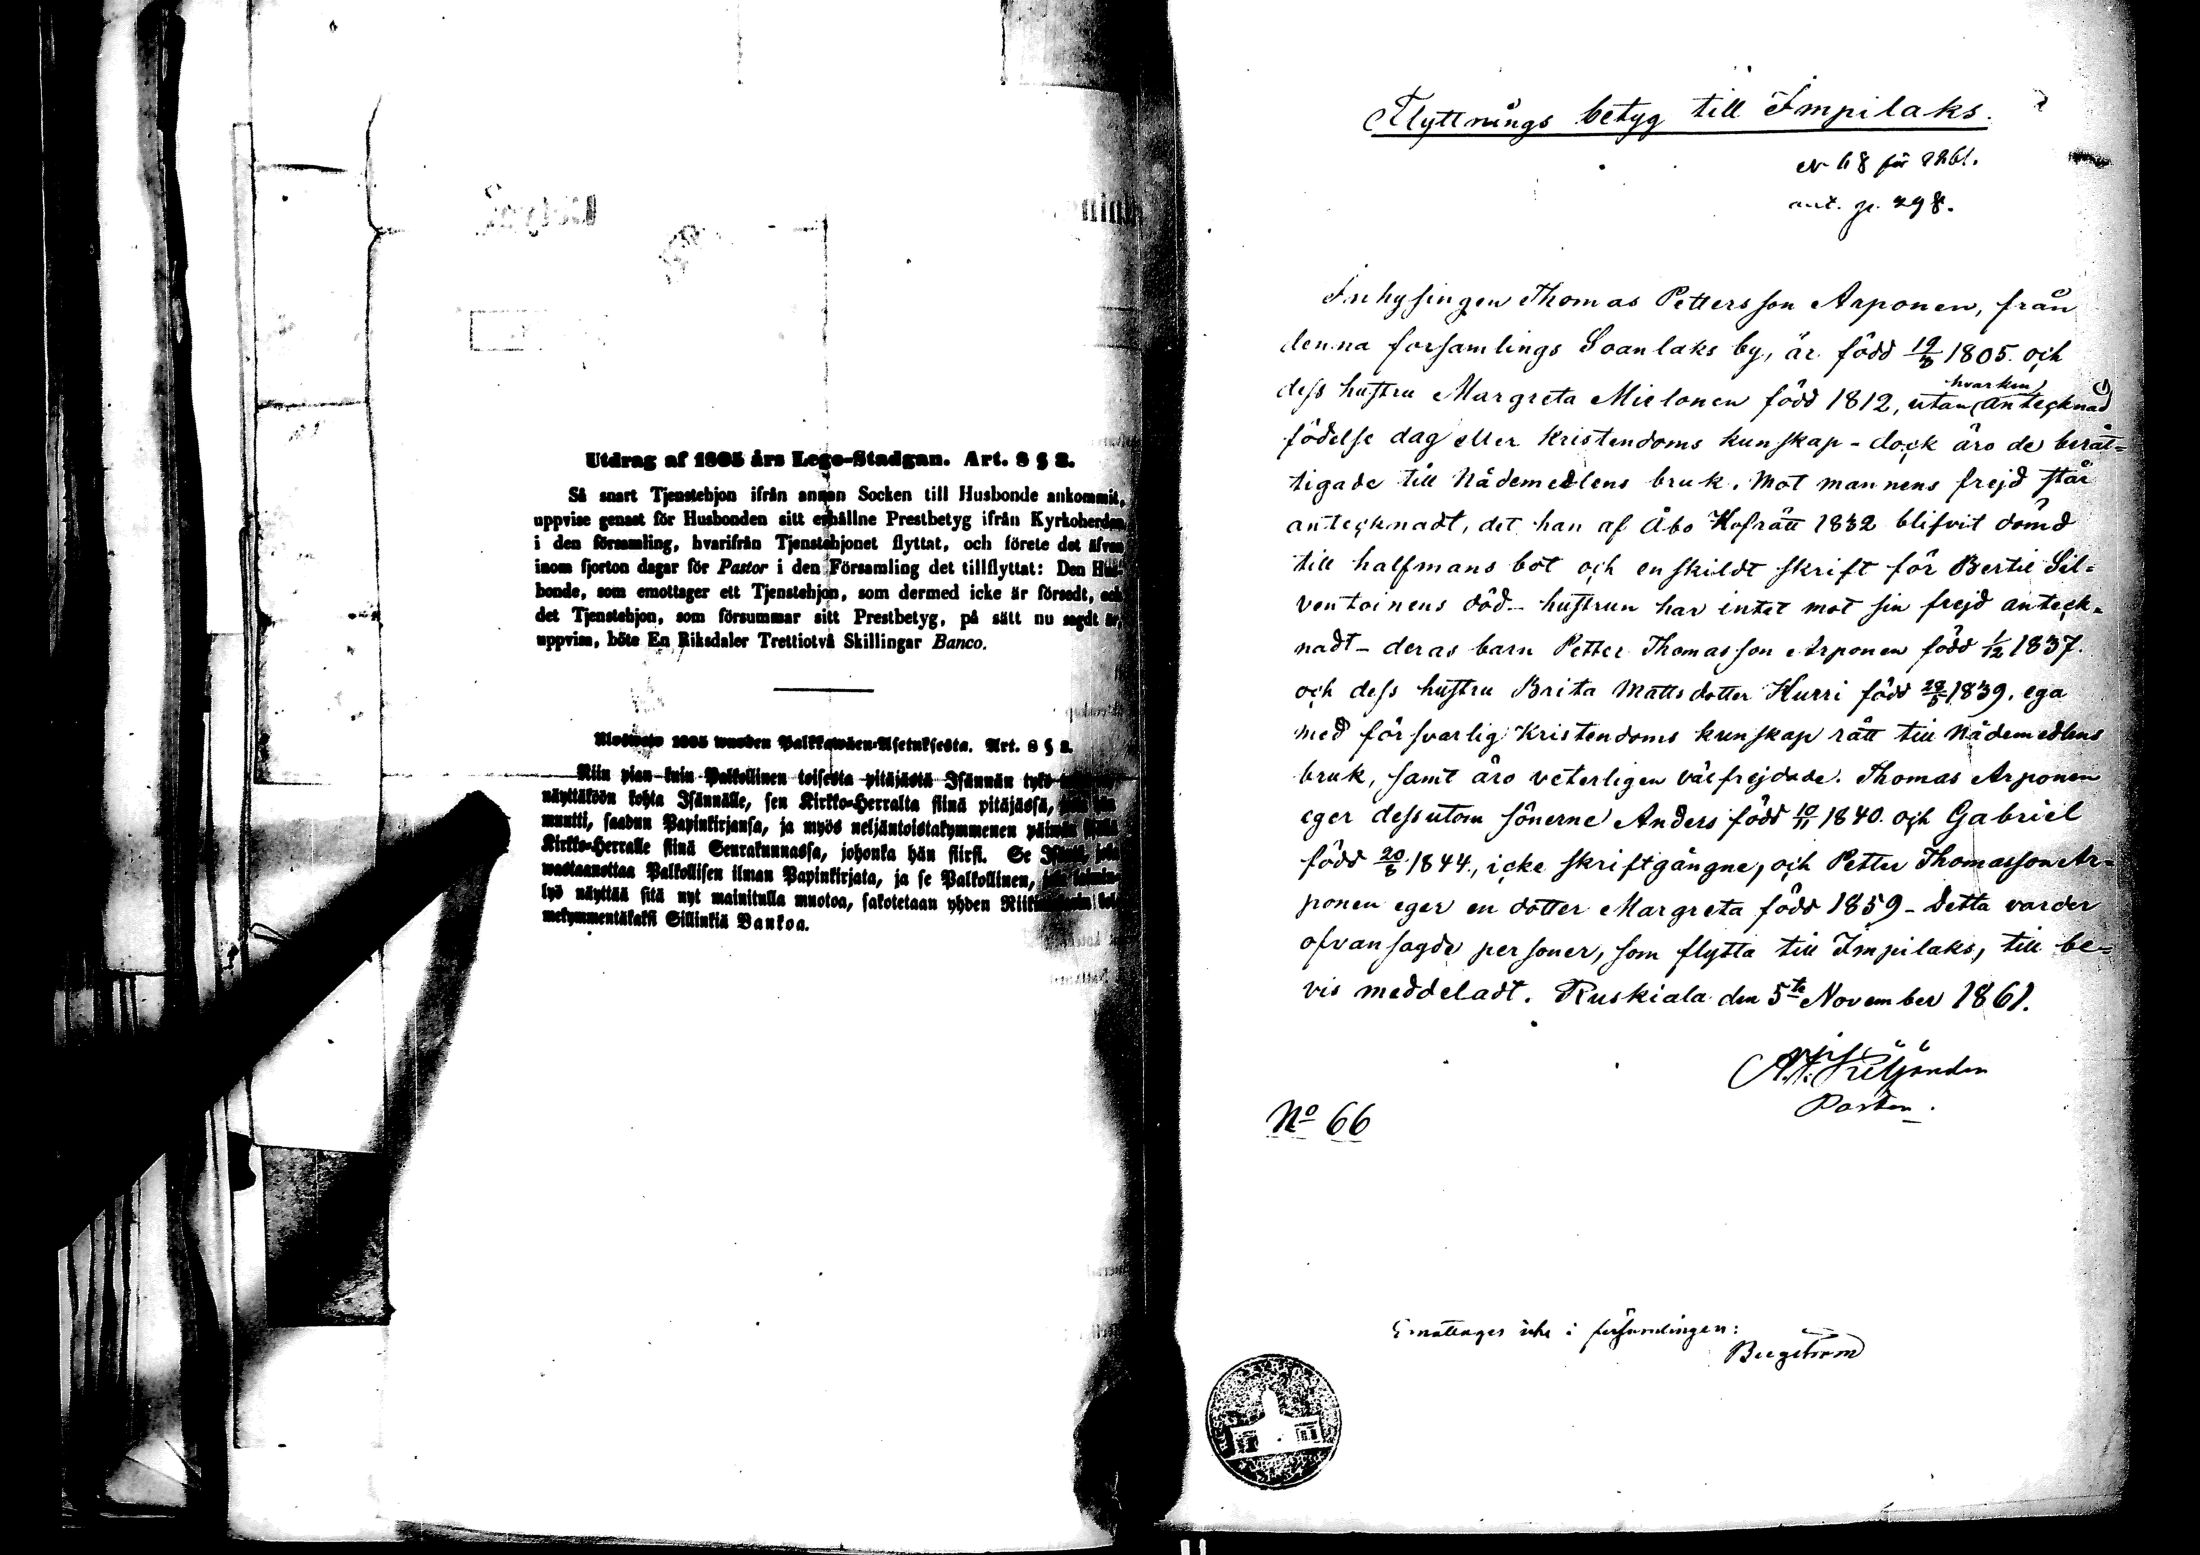 Utdrag af 1805 års Lego-Stadgan. Art. 8 § 8.
Så snart Tjenstehjon ifrån annan Socken till Husbonde ankommit,
uppvise genast för Husbonden sitt erhållne Prestbetyg ifrån Kyrkoherden
i den församling, hvarifrån Tjenstehjonet flyttat, och förete det äfven
inom fjorton dagar för Pastor i den Församling det tillflyttat: Den Hus-
bonde, som emottager ett Tjenstehjon, som dermed icke är försedt, och
det Tjenstehjon, som försummar sitt Prestbetyg, på sätt nu sagdt är,
uppvise, böte En Riksdaler Trettiotvå Skillingar Banco.
1805 wuoden Palkkawäen-Asetuksesta. Art. 8 § 8.
Niin pian kuin Palkollinen toisesta pitäjästä Isännän tykö
näyttäköön kohta Isännälle, sen Kirkko-Herralta siinä pitäjässä,
muutti, saadun Papinkirjansa, ja myös neljäntoistakymmenen päiwän
Kirkko-Herralle siinä Seurakunnassa, johonka hän siirsi. Se
wastaanottaa Palkollisen ilman Papinkirjata, ja se Palkollinen,
lyö näyttää sitä nyt mainitulla muotoa, sakotetaan yhden
mekymmentäkaksi Sillinkiä Bankoa.
Flyttnings betyg till Impilaks.
N 68 för 1861.
ant. p. 298.
Inhysingen Thomas Pettersson Arponen, från
denna församlings Soanlaks by, är född 19/3 1805. och
hvarken
dess hustru Margreta Mielonen född 1812, utan antecknad
födelse dag eller Kristendoms kunskap - dock äro de berät-
tigade till Nådemedlens bruk. Mot mannens frejd står
antecknadt, det han af Åbo Hofrätt 1832 blifvit dömd
till halfmans bot och enskildt skrift för Bertil Sil-
ventoinens död - hustrun har intet mot sin frejd anteck-
nadt - deras barn Petter Thomasson Arponen född 1/12 1837.
och dess hustru Brita Mattsdotter Hurri född 1839. ega
med försvarlig Kristendoms kunskap rätt till Nådemedlens
bruk, samt äro veterligen välfrejdade. Thomas Arponen
eger dessutom sönerne Anders född 10/11 1840. och Gabriel
född 20/8 1844., icke skriftgångne, och Petter Thomasson Ar-
ponen eger en dotter Margreta född 1859 - Detta varder
ofvansagde personer, som flytta till Impilaks, till be-
vis meddeladt. Ruskiala den 5te November 1861.
Pastor.
No 66
Emottages icke i församlingen:
Bergström